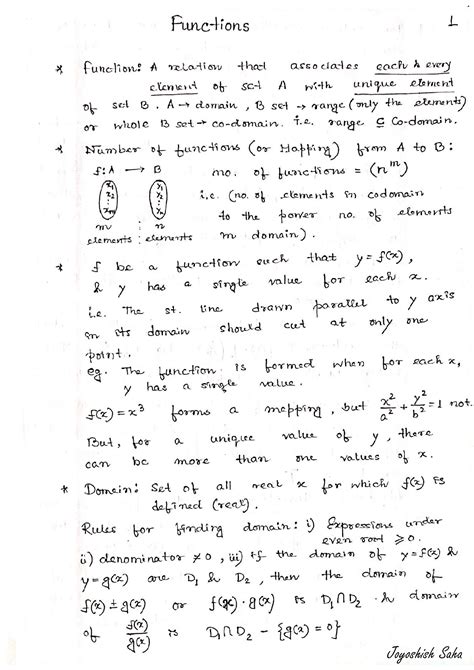 Functions
1
* Function: A relation that associates each & every
element of set A with unique element
of set B. A → domain, B set → range (only the elements)
or whole B set → co-domain. i.e. range ⊆ Co-domain.
* Number of functions (or Mapping) from A to B:
f: A → B no. of functions = (n^m)
x1 x2 ⋮ xm y1 y2 ⋮ yn i.e. (no. of elements in codomain
m : n to the power no. of elements
elements : elements m domain).
* f be a function such that y = f(x),
& y has a single value for each x.
i.e. The st. line drawn parallel to y axis
in its domain should cut at only one
point.
eg. The function is formed when for each x,
y has a single value.
f(x) = x^3 forms a mapping, but x^2/a^2 + y^2/b^2 = 1 not.
But, for a unique value of y, there
can be more than one values of x.
* Domain: Set of all real x for which f(x) is
defined (real).
Rules for finding domain: i) Expressions under
even root ≥ 0.
ii) denominator ≠ 0, iii) If the domain of y = f(x) &
y = g(x) are D1 & D2, then the domain of
f(x) ± g(x) or f(x) · g(x) is D1 ∩ D2 · & domain
of f(x)/g(x) is D1 ∩ D2 − {g(x) = 0}
Joyoshish Saha